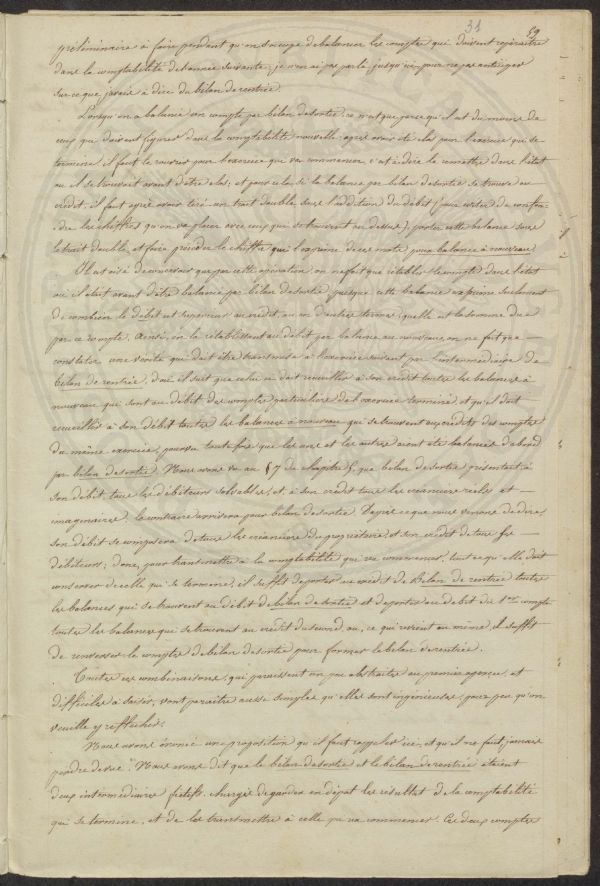 31 59
preliminaire à faire pendant qu'on s'occupe de balancer les comptes qui doivent reparaitre
dans la comptabilité de l'année suivante; je n'en ai pas parlé jusqu'ici pour ne pas anticiper
sur ce que j'avais à dire du bilan de rentrée.
Lorsqu'on a balancé un compte par bilan de sortie, ce n'est que parce qu'il est du moins de
ceux que doivent figurer dans la comptabilité nouvelle: après avoir été clos pour l'exercice qui se
termine, il faut le rouvrir pour l'exercice qui va commencer, c'est à dire le remettre dans l'état
ou il se trouvait avant d'être clos; et pour cela si la balance par bilan de sortie se trouve au
crédit, il faut après avoir tiré un trait double sous l'addition du débit (pour éviter de confon-
dre les chiffres qu'on va placer avec ceux qui se trouvent au dessus), porter cette balance sous
le trait double, et faire précéder le chiffre qui l'exprime de ces mots, pour balance à nouveau.
Il est aisé de concevoir que par cette opération, on ne fait que rétablir le compte dans l'état
où il était avant d'être balancé par bilan de sortie puisque cette balance exprime seulement
de combien le débit est supérieur au crédit, ou en d'autres termes, quelle est la somme due
par ce compte. Ainsi, en la rétablissant au débit par balance au nouveau, on ne fait que
constater une vérité qui doit être transmise à l'exercice suivant par l'intermédiaire de
bilan de rentrée, d'où il suit que celui ci doit recueillir à son crédit toutes les balances à
nouveau qui sont au débit des comptes particuliers de l'exercice terminé et qu'il doit
recueillir à son débit toutes les balances à nouveau qui se trouvent aux crédits des comptes
du même exercice, pourvu toutefois que les uns et les autres aient été balancés d'abord
par bilan de sortie. Nous avons vu au § 7 du chapitre 5, que bilan de sortie présentait à
son débit tous les débiteurs solvables, et, à son crédit tous les créanciers réels et
imaginaires, le contraire arrivera pour bilan de sortie. D'après ce que nous venons de dire,
son débit se composera de tous les créanciers du propriétaire, et son crédit de tous ses
débiteurs; donc, pour transmettre à la comptabilité qui va commencer, tout ce qu'elle doit
conserver de celle qui se termine, il suffit de porter au crédit de bilan de rentrée toutes
les balances qui se trouvent au débit de bilan de sortie et de porter au débit du 1er compte
toutes les balances qui se trouvent au crédit du second ou, ce qui revient au même, il suffit
de renverser le compte de bilan de sortie pour former le bilan de rentrée.
Toutes ces combinaisons, qui paraissent un peu abstraites au premier aperçu, et
difficiles à saisir, vont paraitre aussi simples qu'elles sont ingénieuses, pour peu qu'on
veuille y réfléchir.
Nous avons énoncé une proposition qu'il faut rappeler ici, et qu'il ne faut jamais
perdre de vue: Nous avons dit que le bilan de sortie et le bilan de rentrée étaient
deux intermédiaires fictifs chargés de garder en dépôt les résultats de la comptabilité
qui se termine, et de les transmettre à celle qui va commencer. Ces deux comptes